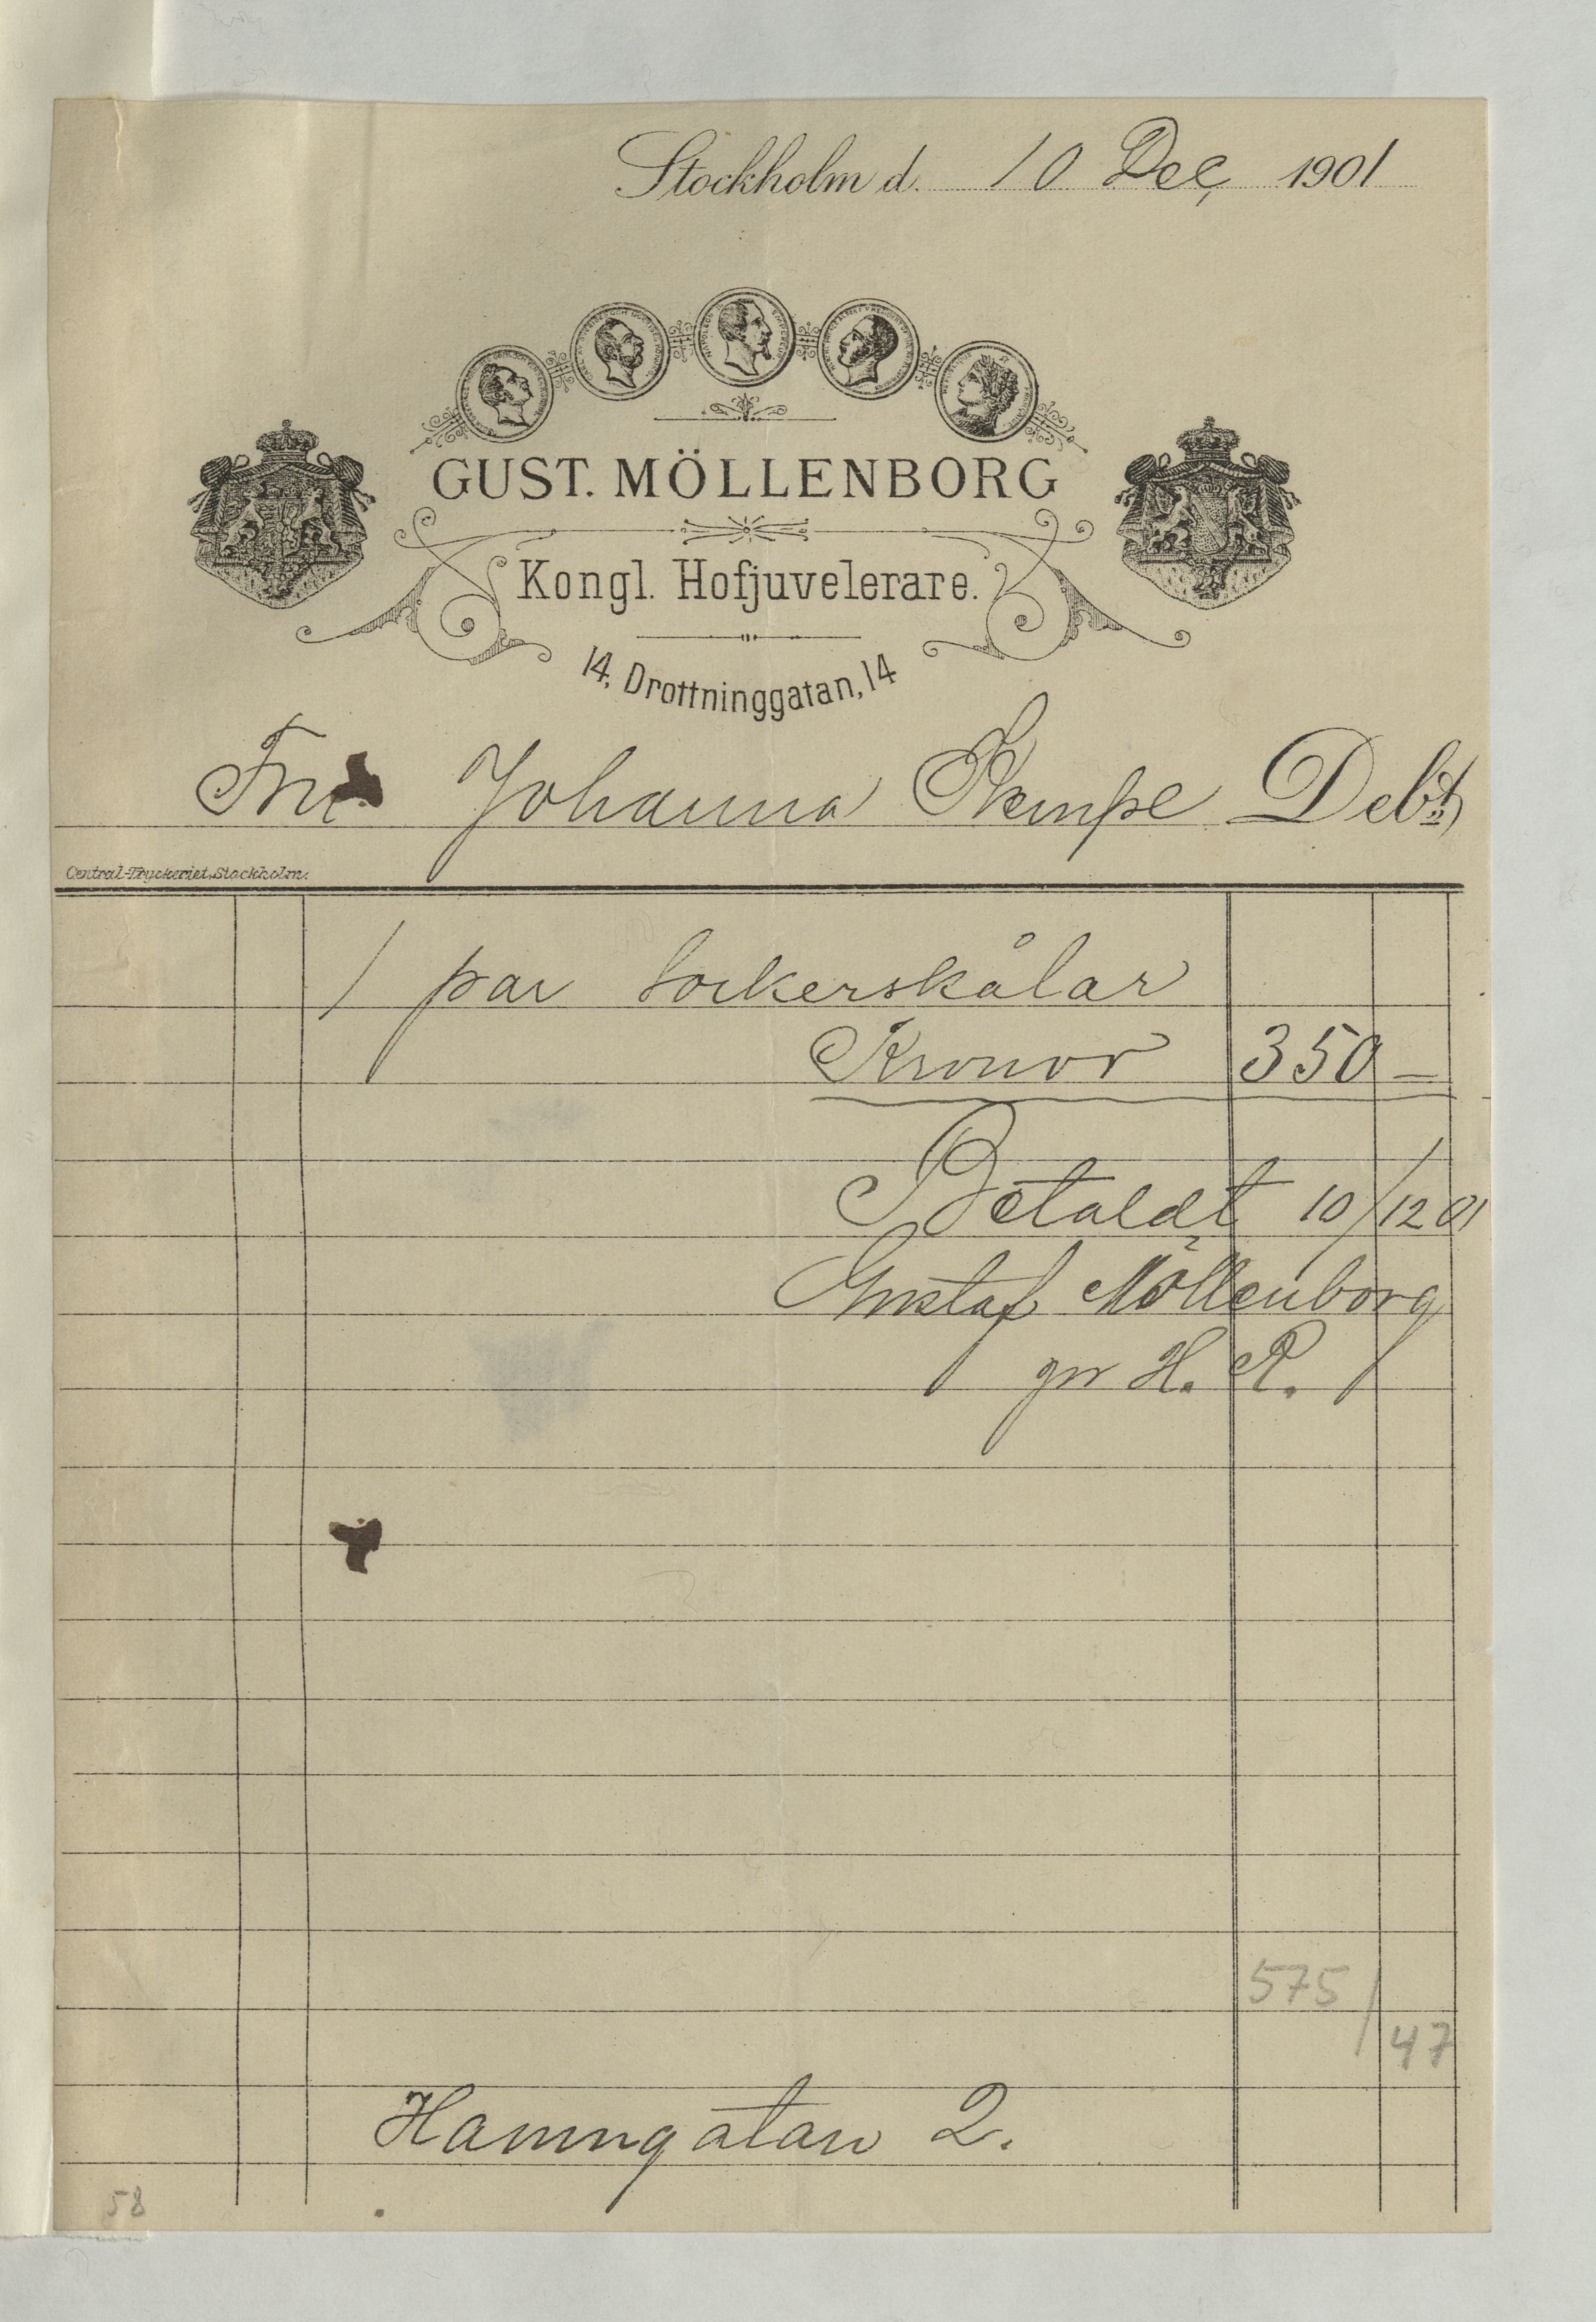 Stockholm d. 10 Dec, 1901
GUST. MÖLLENBORG
Kongl. Hofjuvelerare.
14, Drottninggatan, 14
Fru Johanna Kempe Debt
Central-Tryckeriet, Stockholm.
1 par sockerskålar
Kronor 350 –
Betaldt 10/12 01
Gustaf Möllenborg
gm H. R.
575/
47
Hamngatan 2.
58